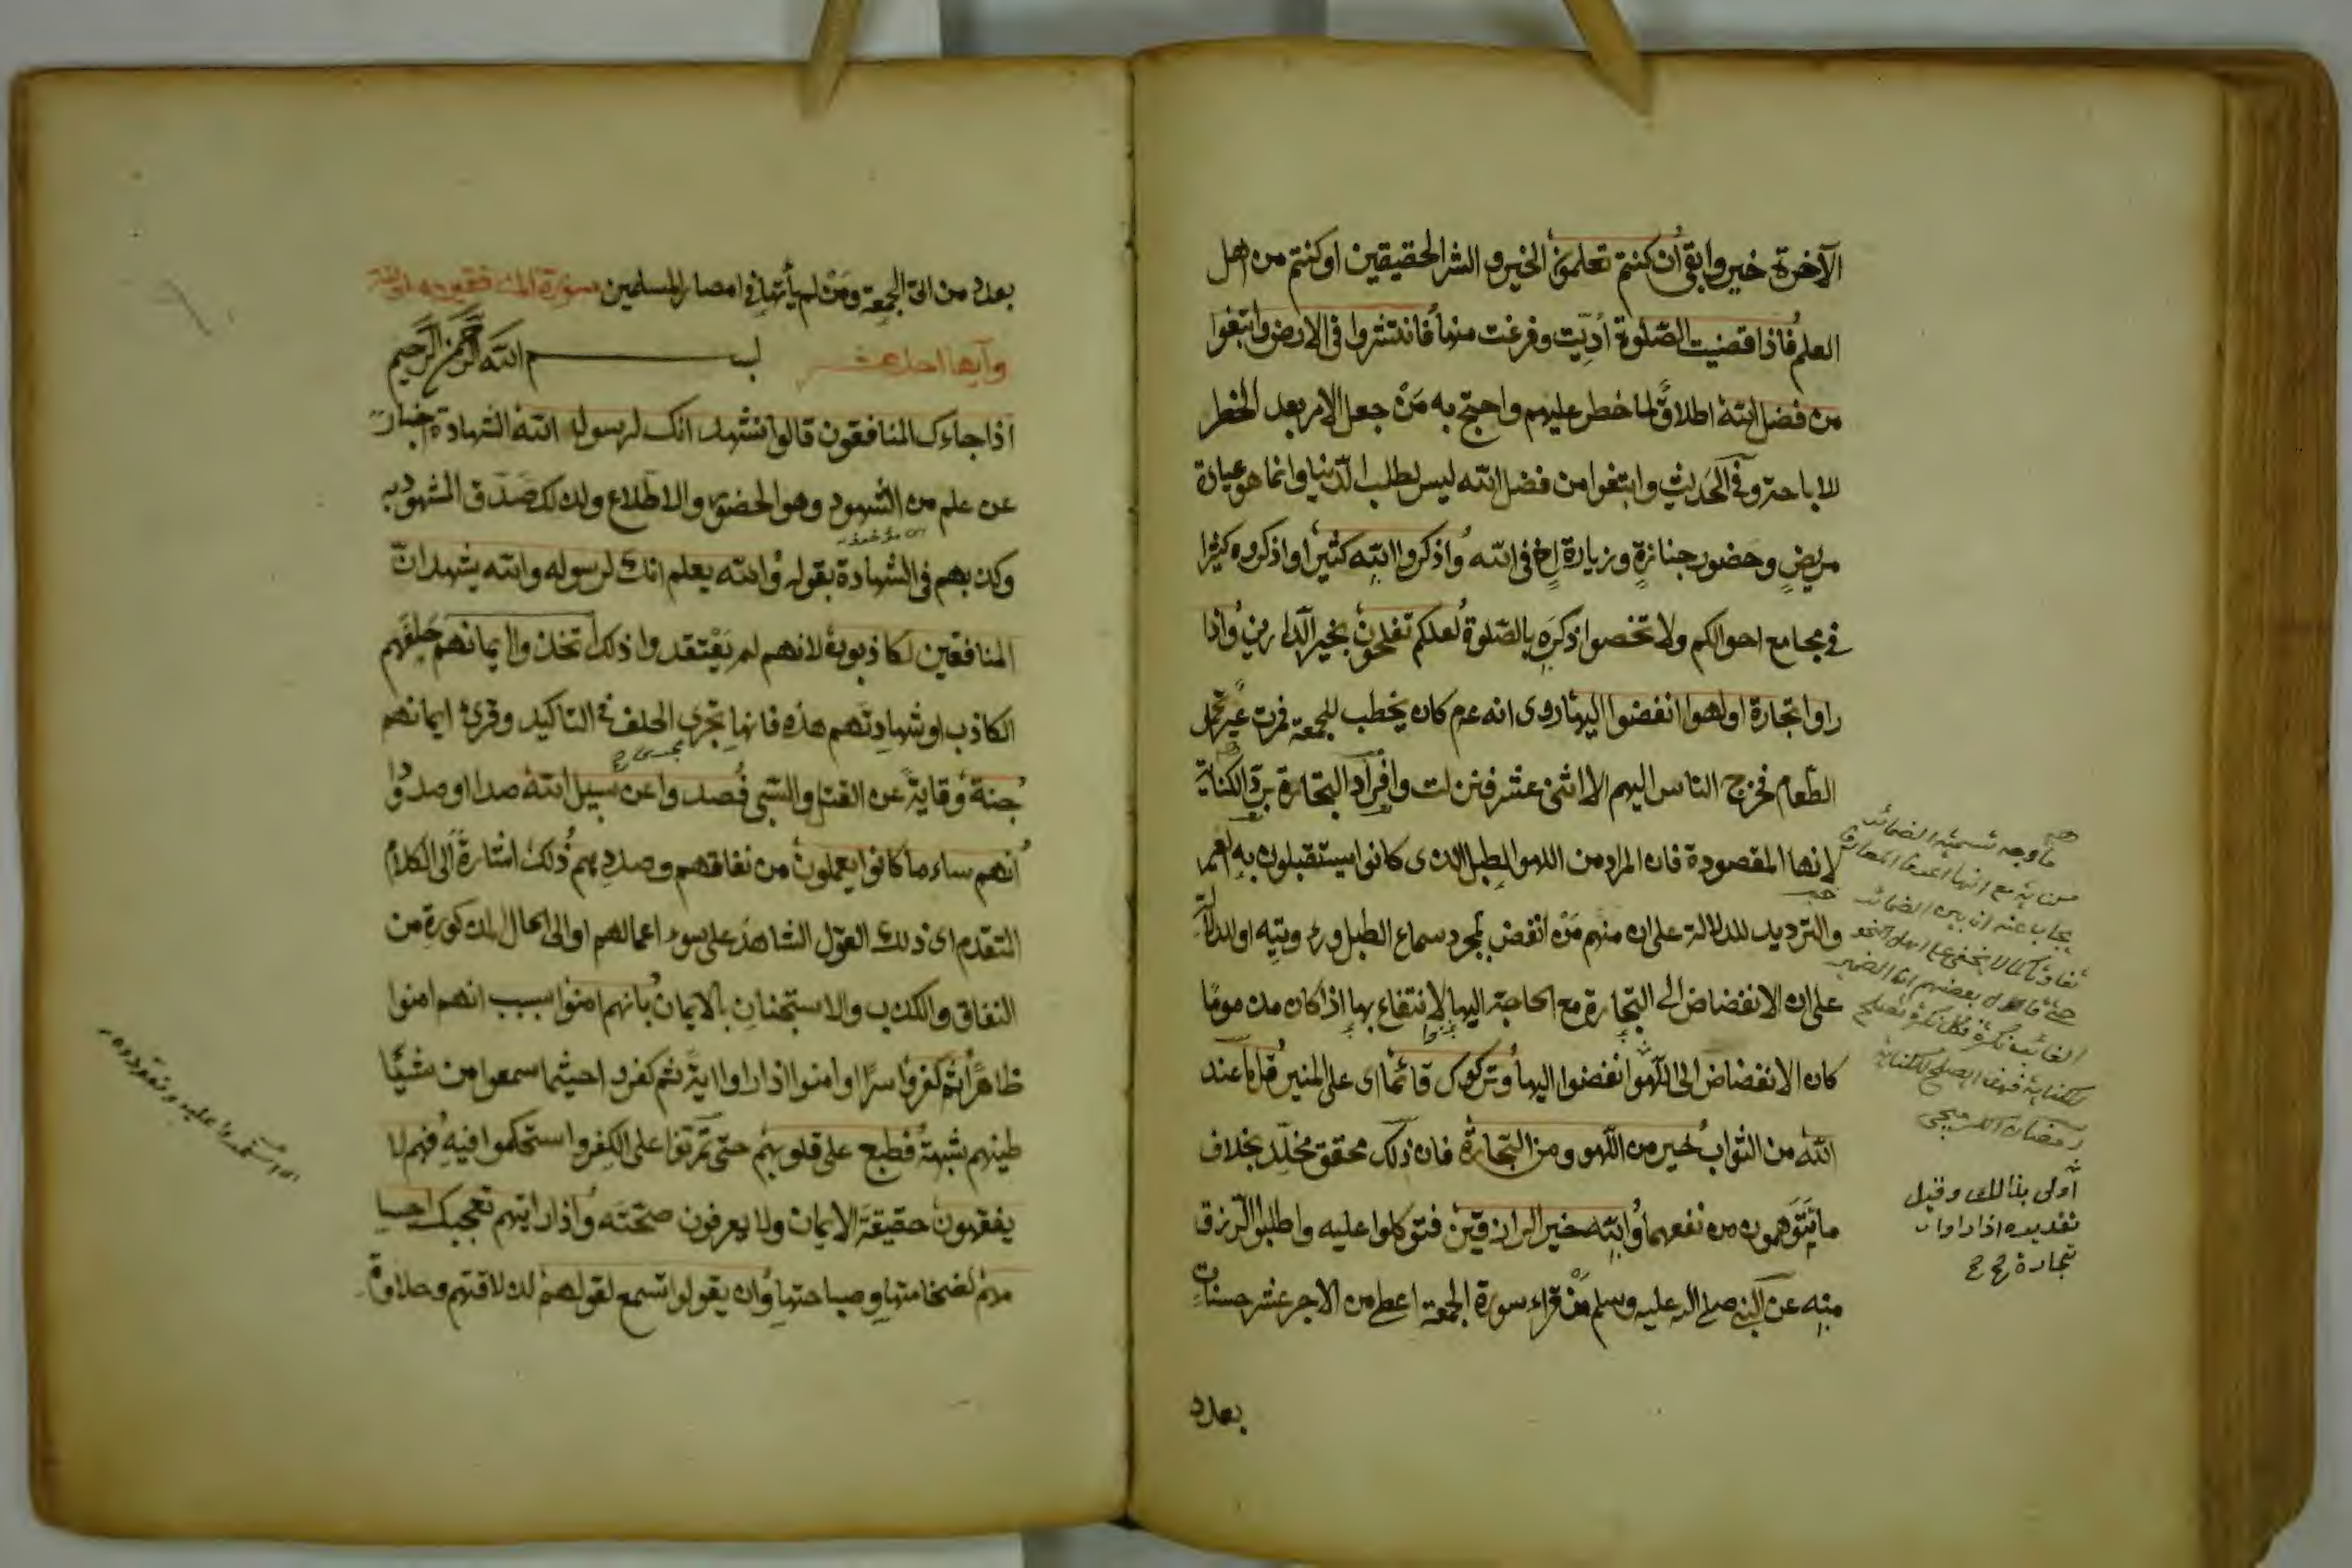 الآخرة خير وابقى ان كنتم تعلمون الخير والشر الحقيقيين او كنتم من اهل
العلم فاذا قضيت الصلوة أديت وفرغت منها فانتشروا فى الارض وابتغوا
من فضل الله اطلاق لما خطر عليهم واحتج به من جعل الامر بعد الخطر
للاباحة وفى الحديث وابتغوا من فضل الله ليس لطلب الدنيا وانما هو عيادة
مريض وحضور جنازة وزيارة اخ فى الله واذكروا الله كثيرا واذكروه كثيرا
فى مجامع احوالكم ولا تخصوا ذكره بالصلوة لعلكم تفلحون بخير الدارين واذا
راوا تجارة او لهوا انفضوا اليها روى انه عم كان يخطب للجمعة فمرت عير تحمل
الطعام فخرج الناس اليهم الا اثنى عشر فنزلت وافراد التجارة برد الكناية
لانها المقصودة فان المراد من اللهو الطبل الذى كانوا يستقبلون به العير
والترديد للدلالة على ان منهم من انفض لمجرد سماع الطبل ورؤيته او للدلالة
على ان الانفضاض الى التجارة مع الحاجة اليها لانتفاع بها اذا كان مذموما
كان الانفضاض الى اللهو انفضوا اليها وتركوك قائما اى على المنبر قل ما عند
الله من الثواب خير من اللهو ومن التجارة فان ذلك محقق مخلد بخلاف
ما يتوهمون من نفعهما والله خير الرازقين فتوكلوا عليه واطلبوا الرزق
منه عن النبى صلى الله عليه وسلم من قراء سورة الجمعة اعطى من الاجر عشر حسنات
بعدد
ما وجه تسمية الضمائر
يجاب عنه ان بين الضمائر
تفاوتا كما لا يخفى على اهل النحو
أولى بذالك وقيل
تقديره اذا راوا
تجارة
بعدد من اتى الجمعة ومن لم يأتها فى امصار المسلمين سورة المنافقين مدنية
وآيها احد عشر بسم الله الرحمن الرحيم
اذا جاءك المنافقون قالوا نشهد انك لرسول الله الشهادة اخبار
عن علم من الشهود وهو الحضور والاطلاع ولذلك صدق المشهود به
وكذبهم فى الشهادة بقوله والله يعلم انك لرسوله والله يشهد ان
المنافقين لكاذبون لانهم لم يعتقدوا ذلك اتخذوا ايمانهم حلفهم
الكاذب او شهادتهم هذه فانها تجرى الحلف فى التاكيد وقرئ ايمانهم
جنة وقاية عن القتل والسبى فصدوا عن سبيل الله صدا او صدودا
انهم ساء ما كانوا يعملون من نفاقهم وصدهم ذلك اشارة الى الكلام
المتقدم اى ذلك القول الشاهد على سوء اعمالهم او الى الحال المذكورة من
النفاق والكذب والاستجنان بالايمان بانهم امنوا بسبب انهم امنوا
ظاهرا ثم كفروا سرا او امنوا اذا راوا اية ثم كفروا حيثما سمعوا من شيا
طينهم شبهة فطبع على قلوبهم حتى تمرنوا على الكفر واستحكموا فيه فهم لا
يفقهون حقيقة الايمان ولا يعرفون صحته واذا رايتهم تعجبك اجسا
مهم لضخامتها وصباحتها وان يقولوا تسمع لقولهم لذلاقتهم وحلاوة